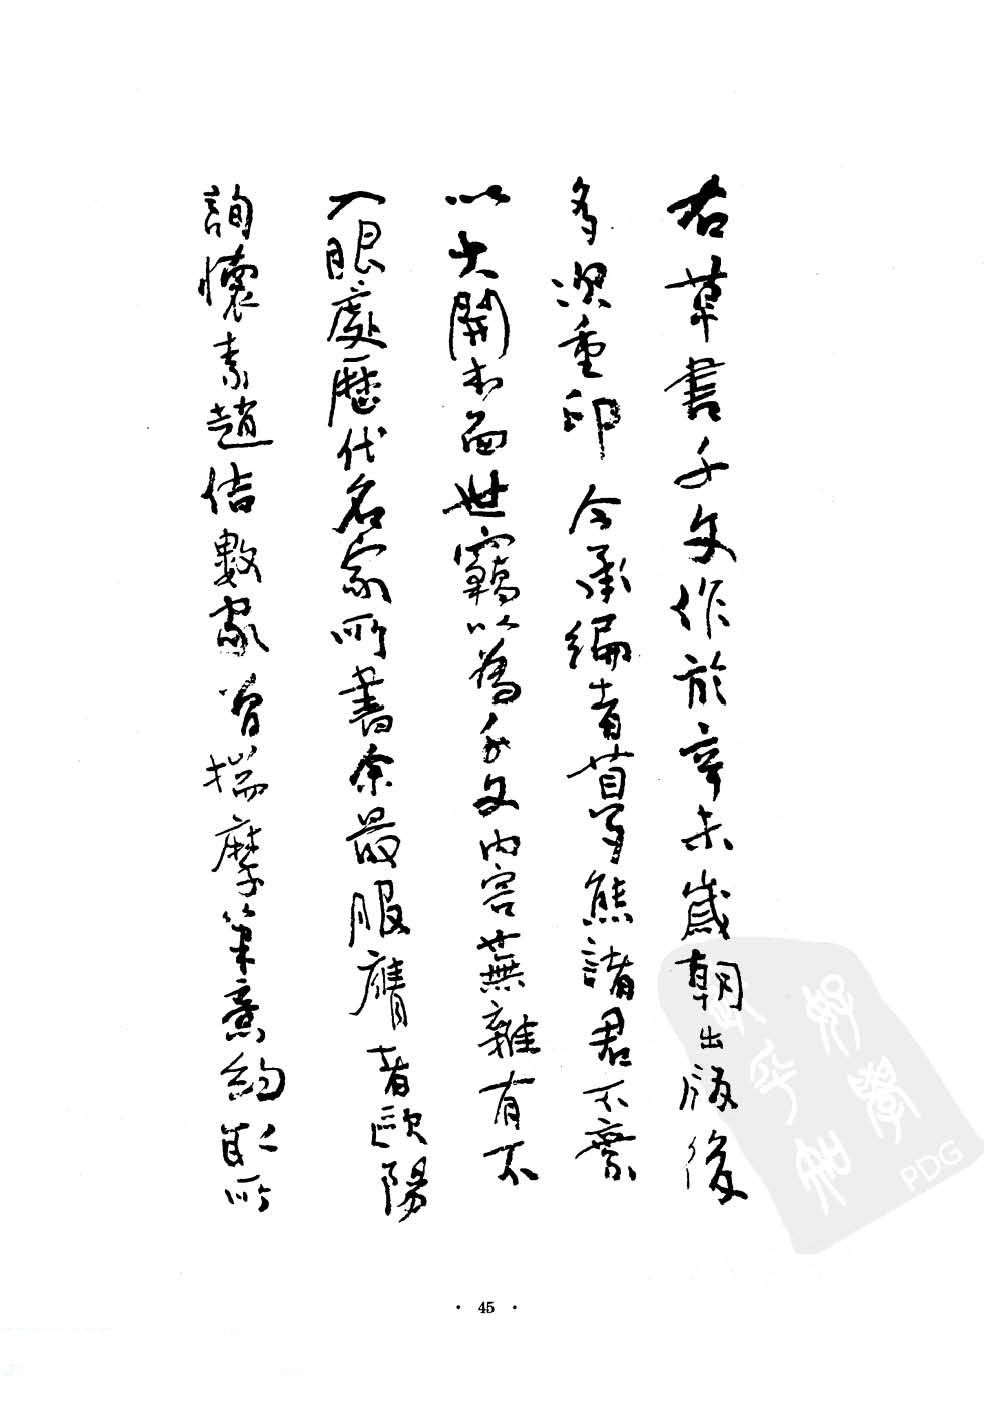 右草書千文作於辛未歲朝出版後
多次重印今承編者苗夢熊諸君不棄
以大開本面世竊以為千文內容蕪雜有不
入眼處歷代名家所書余最服膺者歐陽
詢懷素趙佶數家曾揣摩筆意約取所
· 45 ·
PDG